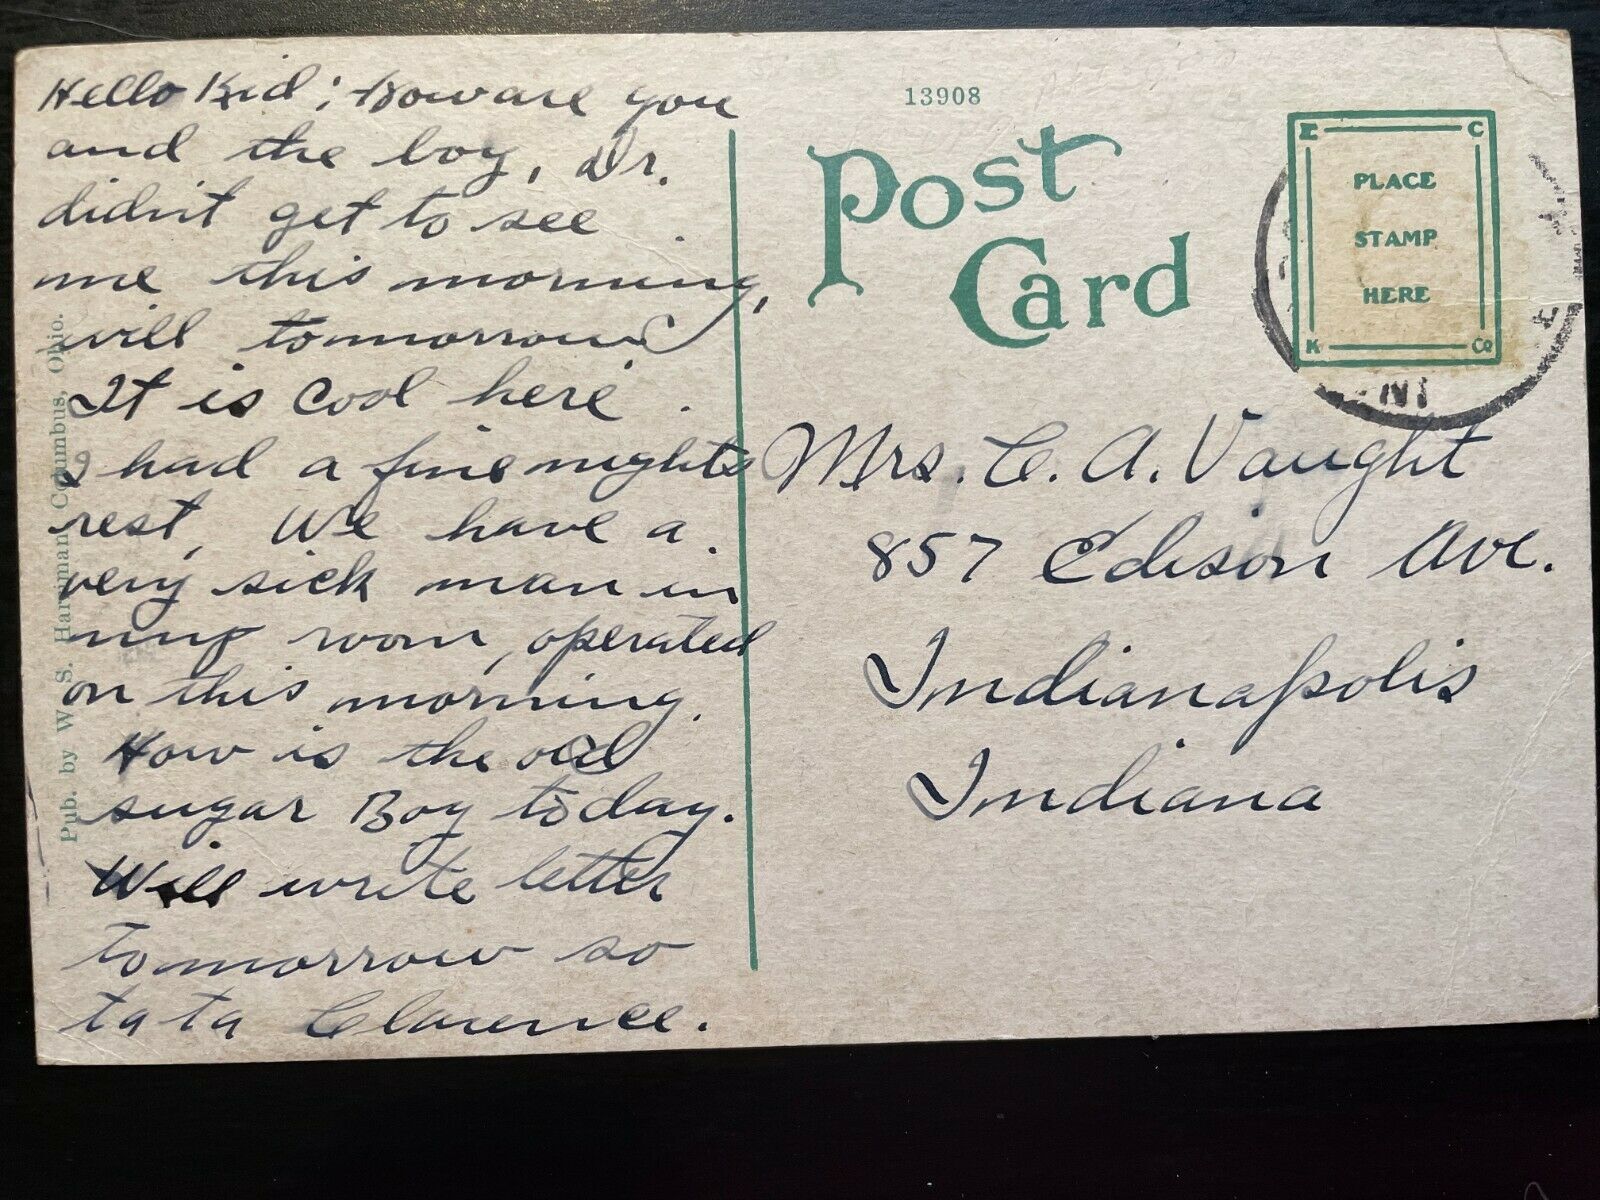 Hello Kid; How are you
and the boy, Dr.
didn't get to see
me this morning,
will tomorrow.
It is cool here.
I had a fine nights
rest, We have a
very sick man in
my room, operated
on this morning.
How is the old
sugar Boy today.
Will write letter
tomorrow so
ta ta Clarence.
Pub. by W. S. Harriman, Columbus, Ohio.
13908
Post
Card
E C
PLACE
STAMP
HERE
K Co
Mrs. C. A. Vaught
857 Edison Ave.
Indianapolis
Indiana